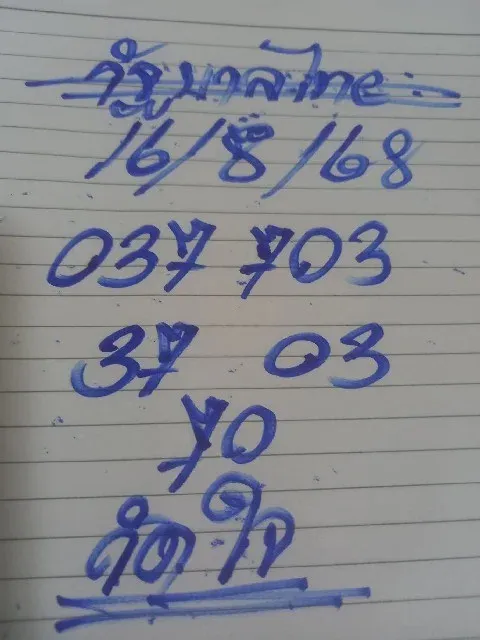 รัฐบาลไทย
16/8/68
037 703
37 03
70
วัดใจ